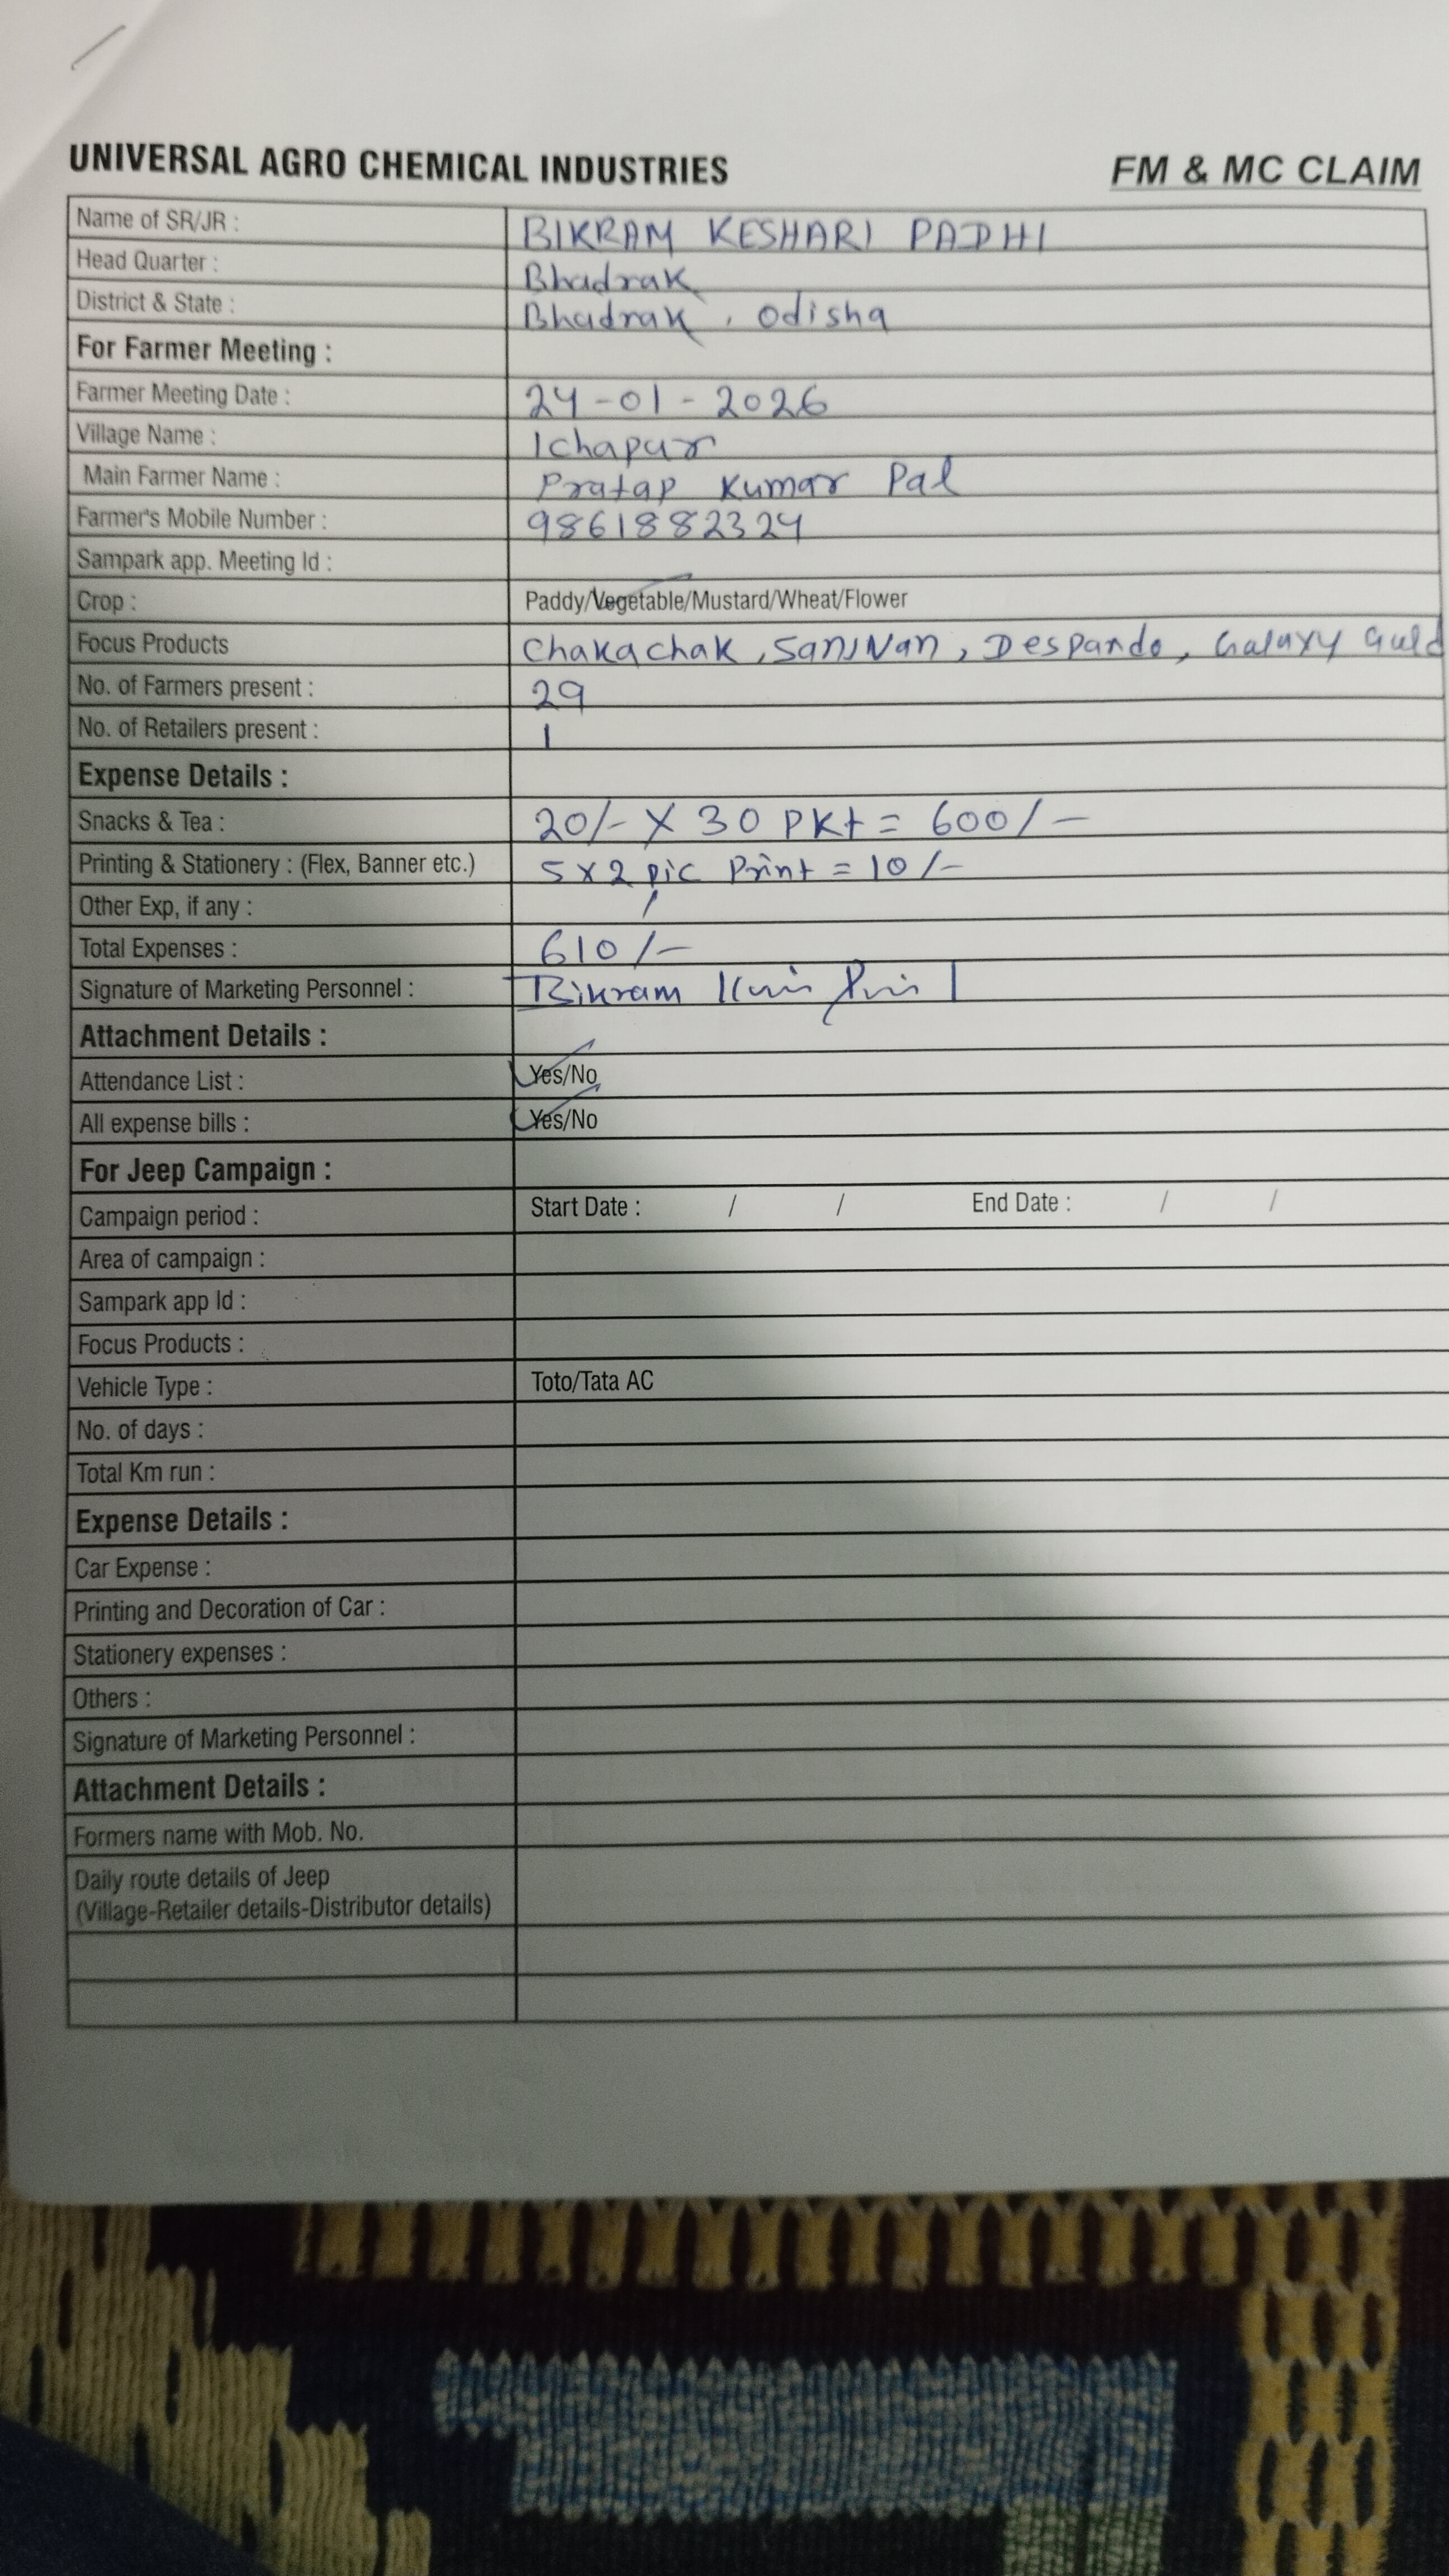 UNIVERSAL AGRO CHEMICAL INDUSTRIES FM & MC CLAIM
Name of SR/JR : BIKRAM KESHARI PADHI
Head Quarter : Bhadrak
District & State : Bhadrak, Odisha
For Farmer Meeting :
Farmer Meeting Date : 24-01-2026
Village Name : Ichapur
Main Farmer Name : Pratap Kumar Pal
Farmer's Mobile Number : 9861882324
Sampark app. Meeting Id :
Crop : Paddy/Vegetable/Mustard/Wheat/Flower
Focus Products Chakachak, Despando, Galaxy Guld
No. of Farmers present : 29
No. of Retailers present : 1
Expense Details :
Snacks & Tea : 20/- X 30 PKt = 600/-
Printing & Stationery : (Flex, Banner etc.) 5 x 2 pic Print = 10/-
Other Exp, if any :
Total Expenses : 610/-
Signature of Marketing Personnel : Bikram
Attachment Details :
Attendance List : Yes/No
All expense bills : Yes/No
For Jeep Campaign :
Campaign period : Start Date : / / End Date : / /
Area of campaign :
Sampark app Id :
Focus Products :
Vehicle Type : Toto/Tata AC
No. of days :
Total Km run :
Expense Details :
Car Expense :
Printing and Decoration of Car :
Stationery expenses :
Others :
Signature of Marketing Personnel :
Attachment Details :
Formers name with Mob. No.
Daily route details of Jeep
(Village-Retailer details-Distributor details)